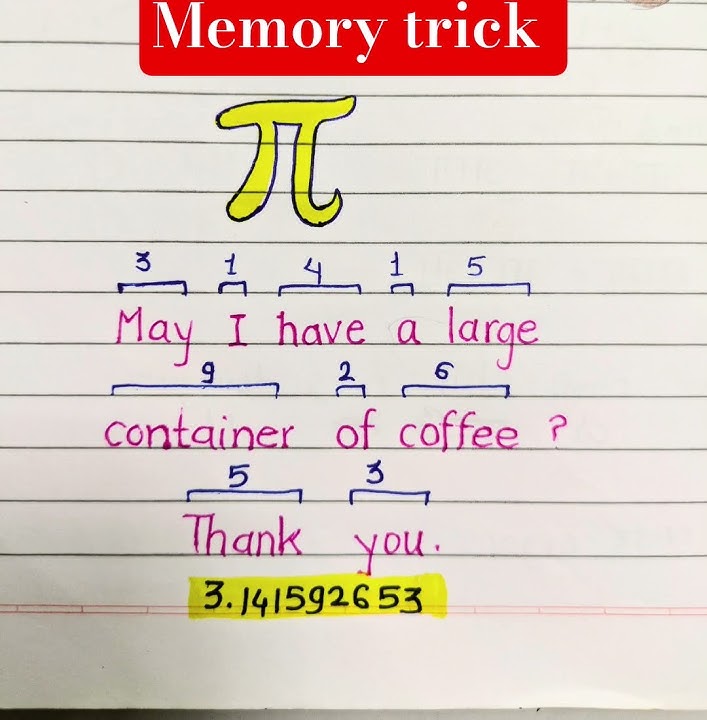 Memory trick
π
3 1 4 1 5
May I have a large
9 2 6
container of coffee ?
5 3
Thank you.
3.141592653